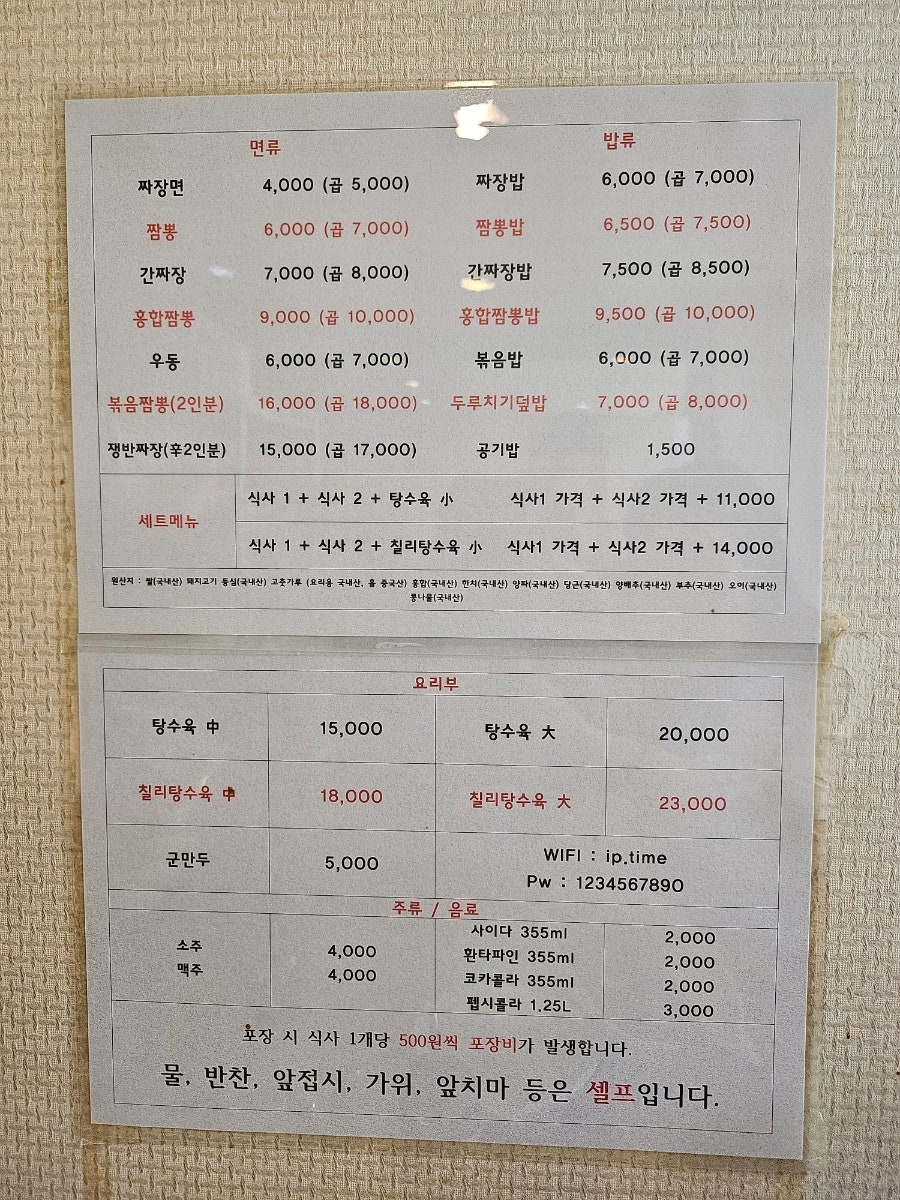 면류 밥류
짜장면 4,000 (곱 5,000) 짜장밥 6,000 (곱 7,000)
짬뽕 6,000 (곱 7,000) 짬뽕밥 6,500 (곱 7,500)
간짜장 7,000 (곱 8,000) 간짜장밥 7,500 (곱 8,500)
홍합짬뽕 9,000 (곱 10,000) 홍합짬뽕밥 9,500 (곱 10,000)
우동 6,000 (곱 7,000) 볶음밥 6,000 (곱 7,000)
볶음짬뽕(2인분) 16,000 (곱 18,000) 두루치기덮밥 7,000 (곱 8,000)
쟁반짜장(후2인분) 15,000 (곱 17,000) 공기밥 1,500
세트메뉴
식사 1 + 식사 2 + 탕수육 小 식사1 가격 + 식사2 가격 + 11,000
식사 1 + 식사 2 + 칠리탕수육 小 식사1 가격 + 식사2 가격 + 14,000
원산지 : 쌀(국내산) 돼지고기 등심(국내산) 고춧가루 (요리용 국내산, 홀 중국산) 홍합(국내산) 한치(국내산) 양파(국내산) 당근(국내산) 양배추(국내산) 부추(국내산) 오이(국내산)
콩나물(국내산)
요리부
탕수육 中 15,000 탕수육 大 20,000
칠리탕수육 中 18,000 칠리탕수육 大 23,000
군만두 5,000
WIFI : ip.time
Pw : 1234567890
주류 / 음료
소주 4,000
맥주 4,000
사이다 355ml 2,000
환타파인 355ml 2,000
코카콜라 355ml 2,000
펩시콜라 1.25L 3,000
포장 시 식사 1개당 500원씩 포장비가 발생합니다.
물, 반찬, 앞접시, 가위, 앞치마 등은 셀프입니다.